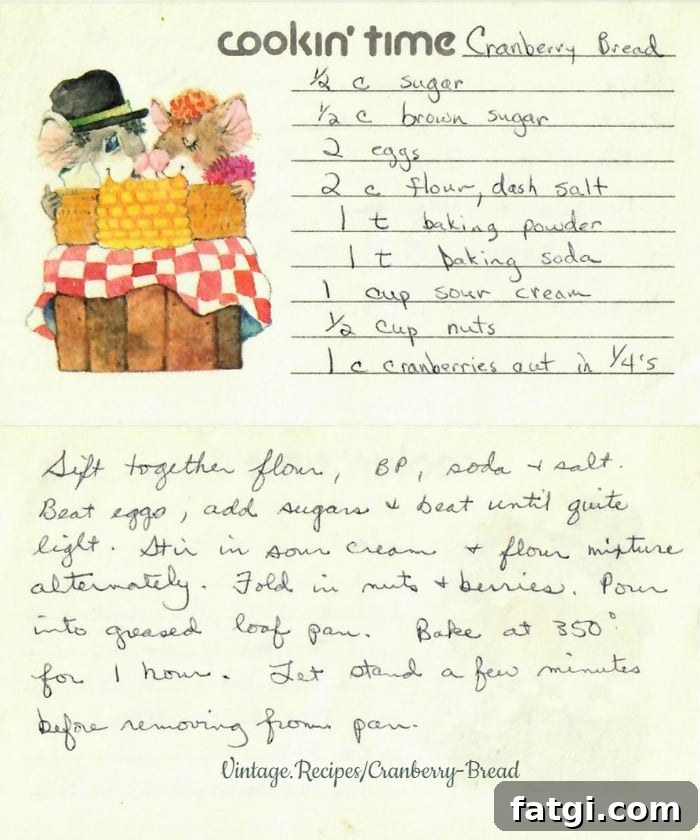 cookin' time Cranberry Bread
1/2 c sugar
1/2 c brown sugar
2 eggs
2 c flour, dash salt
1 t baking powder
1 t baking soda
1 cup sour cream
1/2 cup nuts
1 c cranberries cut in 1/4's
Sift together flour, BP, soda + salt.
Beat eggs, add sugars + beat until quite
light. Stir in sour cream + flour mixture
alternately. Fold in nuts + berries. Pour
into greased loaf pan. Bake at 350°
for 1 hour. Let stand a few minutes
before removing from pan.
Vintage.Recipes/Cranberry-Bread
fatgi.com